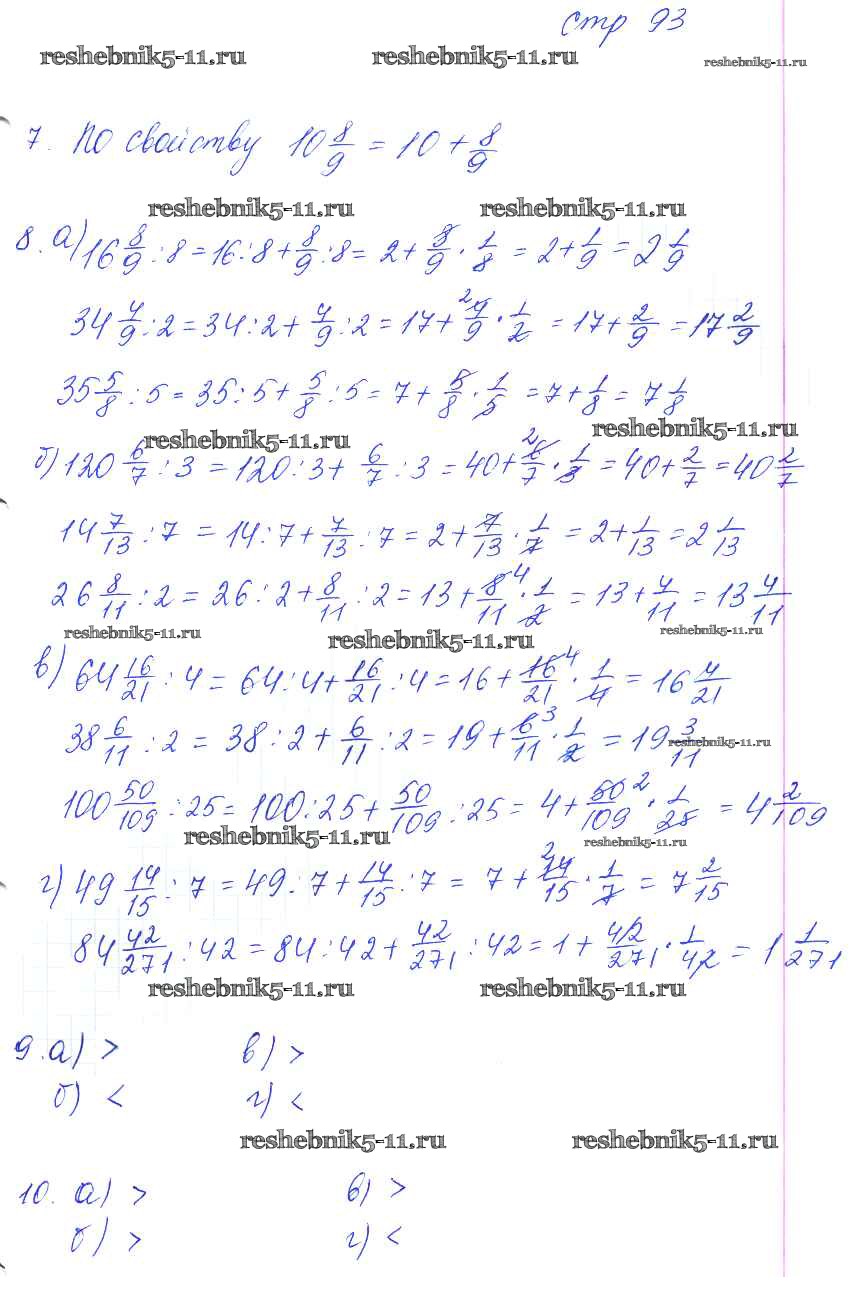 стр 93
reshebnik5-11.ru reshebnik5-11.ru reshebnik5-11.ru
7. По свойству 10 8/9 = 10 + 8/9
reshebnik5-11.ru reshebnik5-11.ru
8. а) 16 8/9 : 8 = 16 : 8 + 8/9 : 8 = 2 + 8/9 · 1/8 = 2 + 1/9 = 2 1/9
34 4/9 : 2 = 34 : 2 + 4/9 : 2 = 17 + 4/9 · 1/2 = 17 + 2/9 = 17 2/9
35 5/8 : 5 = 35 : 5 + 5/8 : 5 = 7 + 5/8 · 1/5 = 7 + 1/8 = 7 1/8
reshebnik5-11.ru reshebnik5-11.ru
б) 120 6/7 : 3 = 120 : 3 + 6/7 : 3 = 40 + 6/7 · 1/3 = 40 + 2/7 = 40 2/7
14 7/13 : 7 = 14 : 7 + 7/13 : 7 = 2 + 7/13 · 1/7 = 2 + 1/13 = 2 1/13
26 8/11 : 2 = 26 : 2 + 8/11 : 2 = 13 + 8/11 · 1/2 = 13 + 4/11 = 13 4/11
reshebnik5-11.ru reshebnik5-11.ru reshebnik5-11.ru
в) 64 16/21 : 4 = 64 : 4 + 16/21 : 4 = 16 + 16/21 · 1/4 = 16 4/21
38 6/11 : 2 = 38 : 2 + 6/11 : 2 = 19 + 6/11 · 1/2 = 19 3/11
reshebnik5-11.ru
100 50/109 : 25 = 100 : 25 + 50/109 : 25 = 4 + 50/109 · 1/25 = 4 2/109
reshebnik5-11.ru reshebnik5-11.ru
г) 49 14/15 : 7 = 49 : 7 + 14/15 : 7 = 7 + 14/15 · 1/7 = 7 2/15
84 42/271 : 42 = 84 : 42 + 42/271 : 42 = 1 + 42/271 · 1/42 = 1 1/271
reshebnik5-11.ru reshebnik5-11.ru
9. а) > в) >
б) < г) <
reshebnik5-11.ru reshebnik5-11.ru
10. а) > в) >
б) > г) <